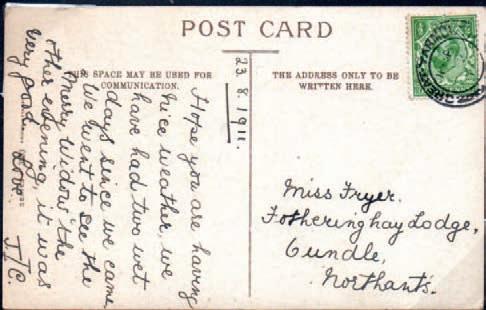 POST CARD
THIS SPACE MAY BE USED FOR
COMMUNICATION.
THE ADDRESS ONLY TO BE
WRITTEN HERE.
23.8.1911.
Hope you are having
nice weather, we
have had two wet
days since we came
we went to see the
Merry Widow the
other evening, it was
very good. Love.
J/C.
Miss Fryer.
Fotheringhay Lodge,
Oundle,
Northants.